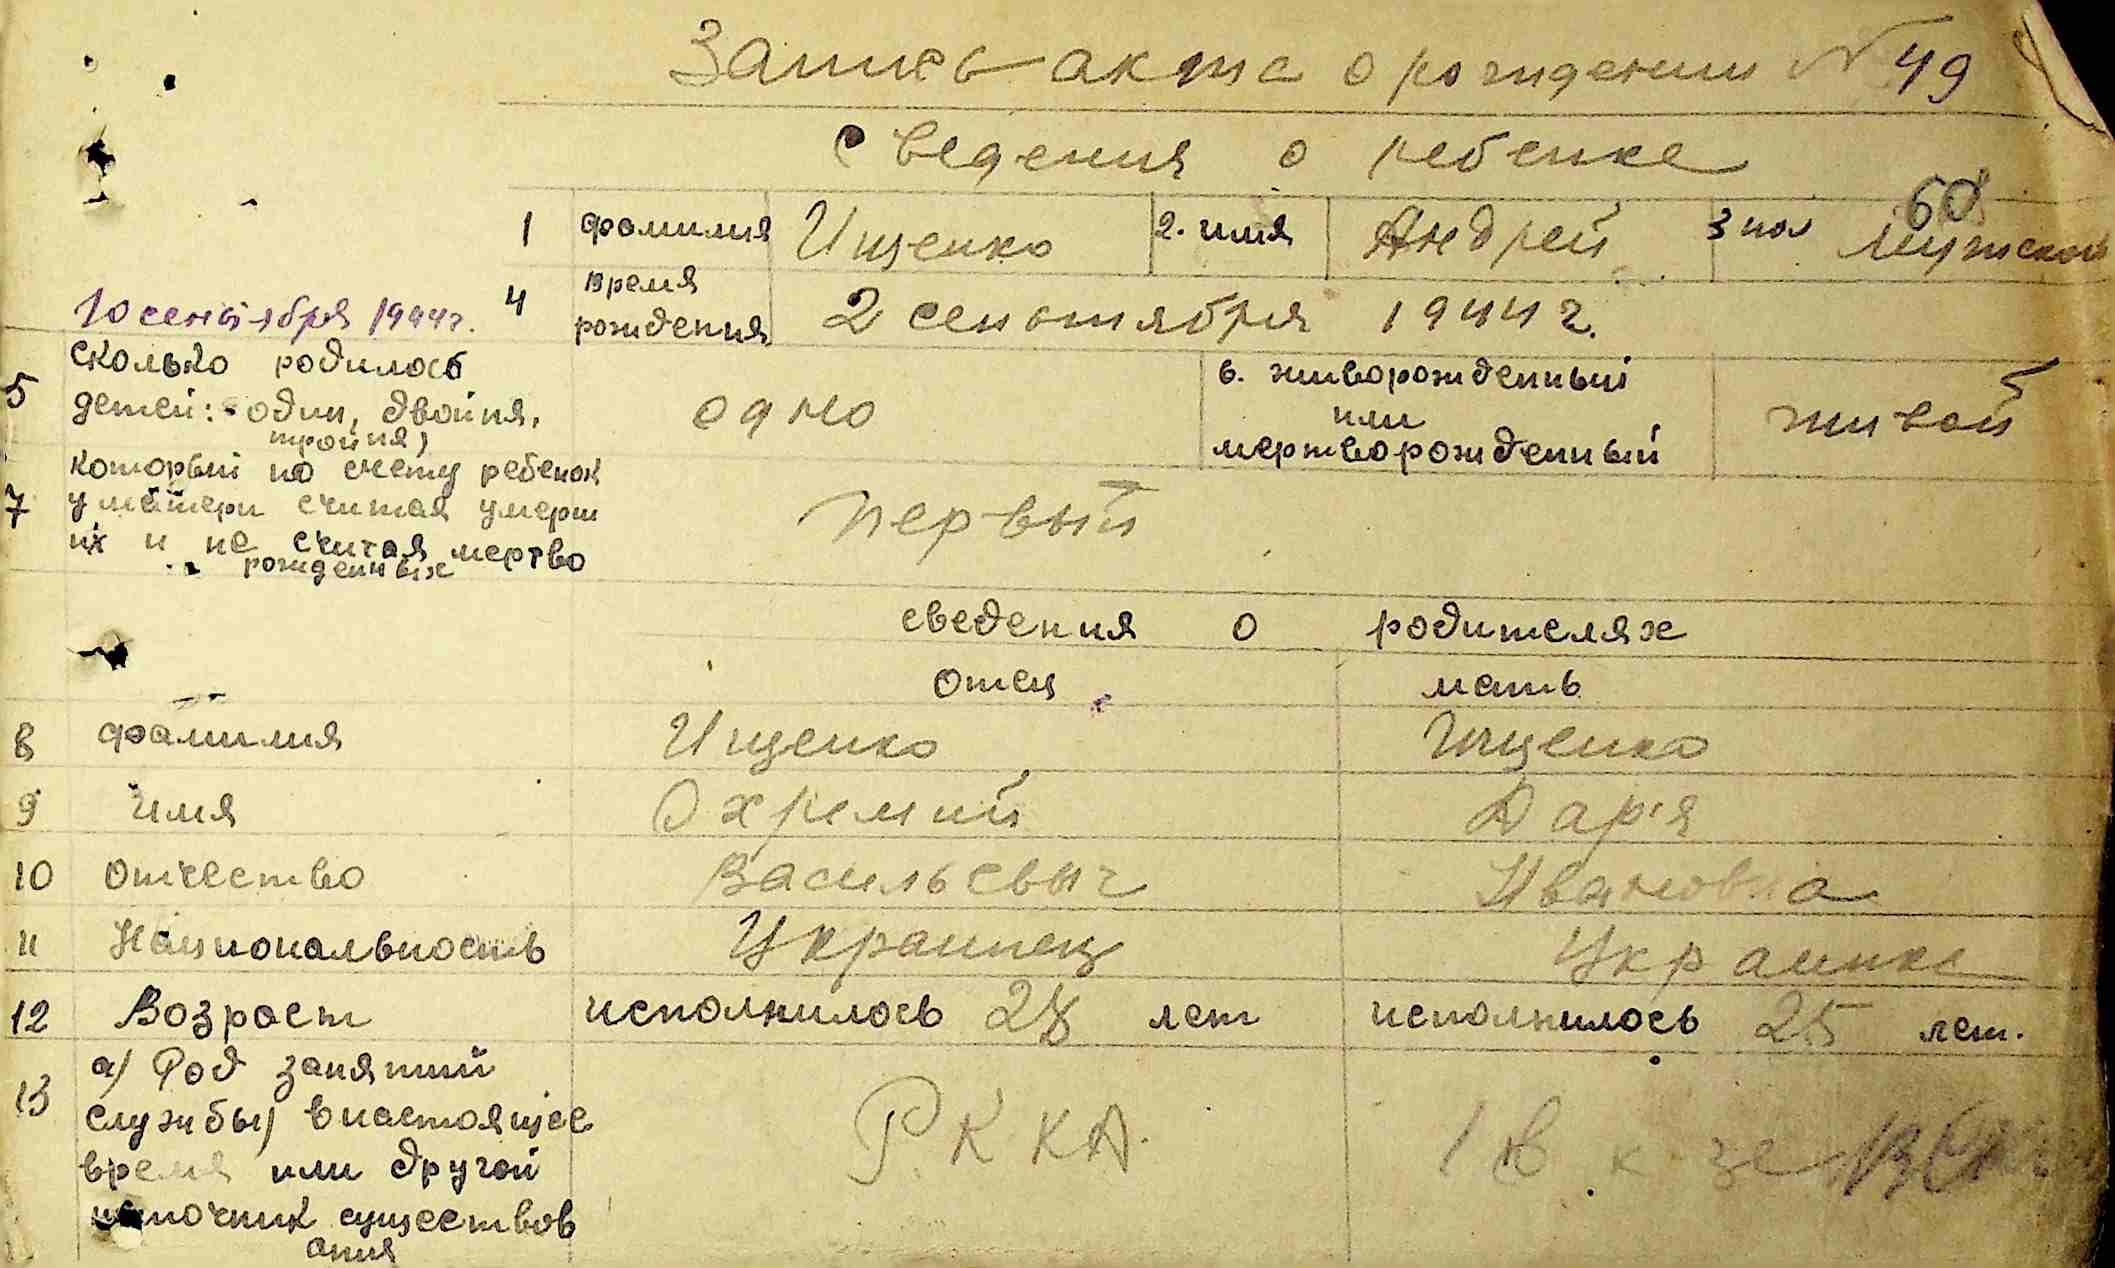 Запись акта о рождении N 49
Сведения о ребенке
60
1 фамилия Ищенко 2. имя Андрей 3 пол мужской
10 сентября 1944г. 4 время рождения 2 сентября 1944 г.
5 сколько родилось
детей: один, двойня,
тройня)
одно
6. живорожденный
или
мертворожденный
живой
7 который по счету ребенок
у матери считая умерш
их и не считая мертво
рожденных
первый
сведения о родителях
отец мать
8 фамилия Ищенко Ищенко
9 имя Охремий Дар'я
10 отчество Васильевыч Ивановна
11 Национальность Украинец Украинка
12 Возраст исполнилось 28 лет исполнилось 25 лет.
13 а) Род занятий
службы) в настоящее
время или другой
источник существов
ания
РККА